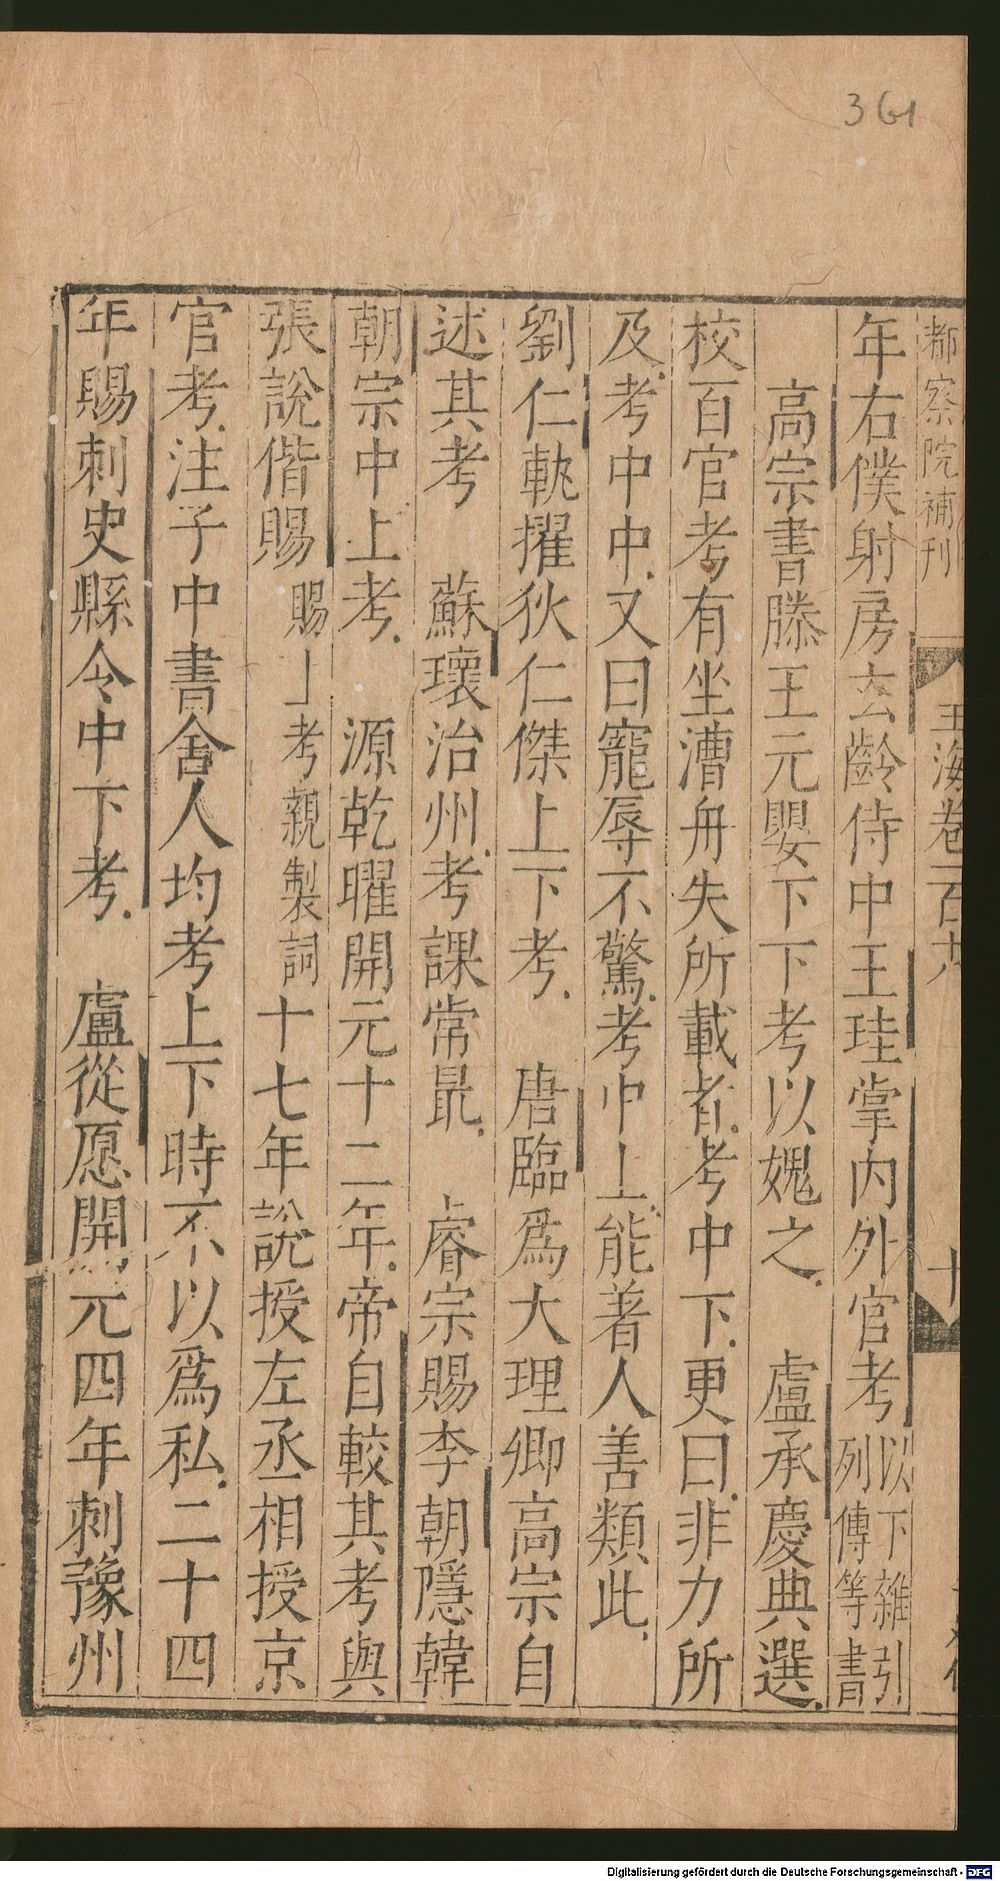 361
都察院補刊
玉海卷一百十八
十
年右僕射房玄齡侍中王珪掌内外官考以下雜引列傳等書
高宗書滕王元嬰下下考以媿之 盧承慶典選
校百官考有坐漕舟失所載者考中下更曰非力所
及考中中又曰寵辱不驚考中上能著人善類此
劉仁軌擢狄仁傑上下考 唐臨為大理卿高宗自
述其考 蘇瓌治州考課常最 睿宗賜李朝隱韓
朝宗中上考 源乾曜開元十二年帝自較其考與
張說偕賜賜上考親製詞十七年說授左丞相授京
官考注子中書舍人均考上下時不以為私二十四
年賜刺史縣令中下考 盧從愿開元四年刺豫州
Digitalisierung gefördert durch die Deutsche Forschungsgemeinschaft - DFG